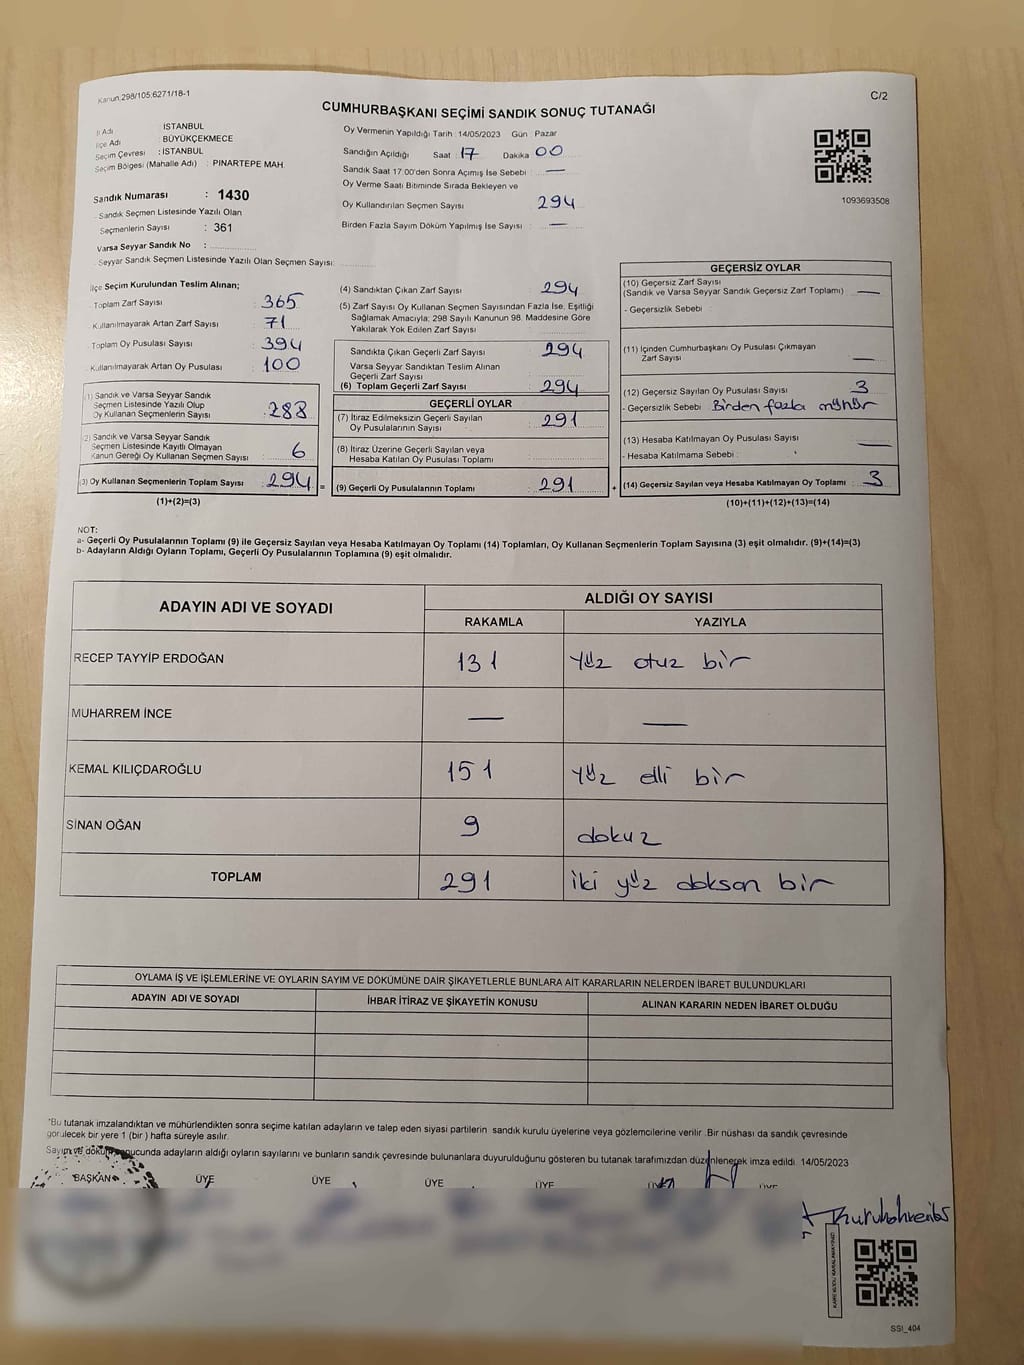 Kanun.298/105:6271/18-1
C/2
CUMHURBAŞKANI SEÇİMİ SANDIK SONUÇ TUTANAĞI
İl Adı : İSTANBUL
İlçe Adı : BÜYÜKÇEKMECE
Seçim Çevresi : İSTANBUL
Seçim Bölgesi (Mahalle Adı) : PINARTEPE MAH.
Sandık Numarası : 1430
Sandık Seçmen Listesinde Yazılı Olan
Seçmenlerin Sayısı : 361
Varsa Seyyar Sandık No :
Seyyar Sandık Seçmen Listesinde Yazılı Olan Seçmen Sayısı:
Oy Vermenin Yapıldığı Tarih :14/05/2023 Gün : Pazar
Sandığın Açıldığı Saat : 17 Dakika : 00
Sandık Saat 17:00'den Sonra Açımış İse Sebebi : —
Oy Verme Saati Bitiminde Sırada Bekleyen ve
Oy Kullandırılan Seçmen Sayısı 294
Birden Fazla Sayım Döküm Yapılmış İse Sayısı : —
1093693508
İlçe Seçim Kurulundan Teslim Alınan;
Toplam Zarf Sayısı : 365
Kullanılmayarak Artan Zarf Sayısı : 71
Toplam Oy Pusulası Sayısı : 394
Kullanılmayarak Artan Oy Pusulası : 100
(1) Sandık ve Varsa Seyyar Sandık
Seçmen Listesinde Yazılı Olup
Oy Kullanan Seçmenlerin Sayısı : 288
(2) Sandık ve Varsa Seyyar Sandık
Seçmen Listesinde Kayıtlı Olmayan
Kanun Gereği Oy Kullanan Seçmen Sayısı : 6
(3) Oy Kullanan Seçmenlerin Toplam Sayısı : 294 =
(1)+(2)=(3)
(4) Sandıktan Çıkan Zarf Sayısı : 294
(5) Zarf Sayısı Oy Kullanan Seçmen Sayısından Fazla İse, Eşitliği
Sağlamak Amacıyla; 298 Sayılı Kanunun 98. Maddesine Göre
Yakılarak Yok Edilen Zarf Sayısı :
Sandıkta Çıkan Geçerli Zarf Sayısı : 294
Varsa Seyyar Sandıktan Teslim Alınan
Geçerli Zarf Sayısı :
(6) Toplam Geçerli Zarf Sayısı : 294
GEÇERLİ OYLAR
(7) İtiraz Edilmeksizin Geçerli Sayılan
Oy Pusulalarının Sayısı : 291
(8) İtiraz Üzerine Geçerli Sayılan veya
Hesaba Katılan Oy Pusulası Toplamı :
(9) Geçerli Oy Pusulalarının Toplamı : 291 +
GEÇERSİZ OYLAR
(10) Geçersiz Zarf Sayısı
(Sandık ve Varsa Seyyar Sandık Geçersiz Zarf Toplamı) : —
- Geçersizlik Sebebi :
(11) İçinden Cumhurbaşkanı Oy Pusulası Çıkmayan
Zarf Sayısı : —
(12) Geçersiz Sayılan Oy Pusulası Sayısı : 3
- Geçersizlik Sebebi : Birden fazla mühür
(13) Hesaba Katılmayan Oy Pusulası Sayısı : —
- Hesaba Katılmama Sebebi :
(14) Geçersiz Sayılan veya Hesaba Katılmayan Oy Toplamı : 3
(10)+(11)+(12)+(13)=(14)
NOT:
a- Geçerli Oy Pusulalarının Toplamı (9) ile Geçersiz Sayılan veya Hesaba Katılmayan Oy Toplamı (14) Toplamları, Oy Kullanan Seçmenlerin Toplam Sayısına (3) eşit olmalıdır. (9)+(14)=(3)
b- Adayların Aldığı Oyların Toplamı, Geçerli Oy Pusulalarının Toplamına (9) eşit olmalıdır.
ADAYIN ADI VE SOYADI ALDIĞI OY SAYISI
RAKAMLA YAZIYLA
RECEP TAYYİP ERDOĞAN 131 yüz otuz bir
MUHARREM İNCE — —
KEMAL KILIÇDAROĞLU 151 yüz elli bir
SİNAN OĞAN 9 dokuz
TOPLAM 291 iki yüz doksan bir
OYLAMA İŞ VE İŞLEMLERİNE VE OYLARIN SAYIM VE DÖKÜMÜNE DAİR ŞİKAYETLERLE BUNLARA AİT KARARLARIN NELERDEN İBARET BULUNDUKLARI
ADAYIN ADI VE SOYADI İHBAR İTİRAZ VE ŞİKAYETİN KONUSU ALINAN KARARIN NEDEN İBARET OLDUĞU
*Bu tutanak imzalandıktan ve mühürlendikten sonra seçime katılan adayların ve talep eden siyasi partilerin sandık kurulu üyelerine veya gözlemcilerine verilir. Bir nüshası da sandık çevresinde
görülecek bir yere 1 (bir ) hafta süreyle asılır.
Sayım ve döküm sonucunda adayların aldığı oyların sayılarını ve bunların sandık çevresinde bulunanlara duyurulduğunu gösteren bu tutanak tarafımızdan düzenlenerek imza edildi. 14/05/2023
BAŞKAN ÜYE ÜYE ÜYE ÜYE ÜYE ÜYE
KARE KODU KARALAMAYINIZ!
SSI_404